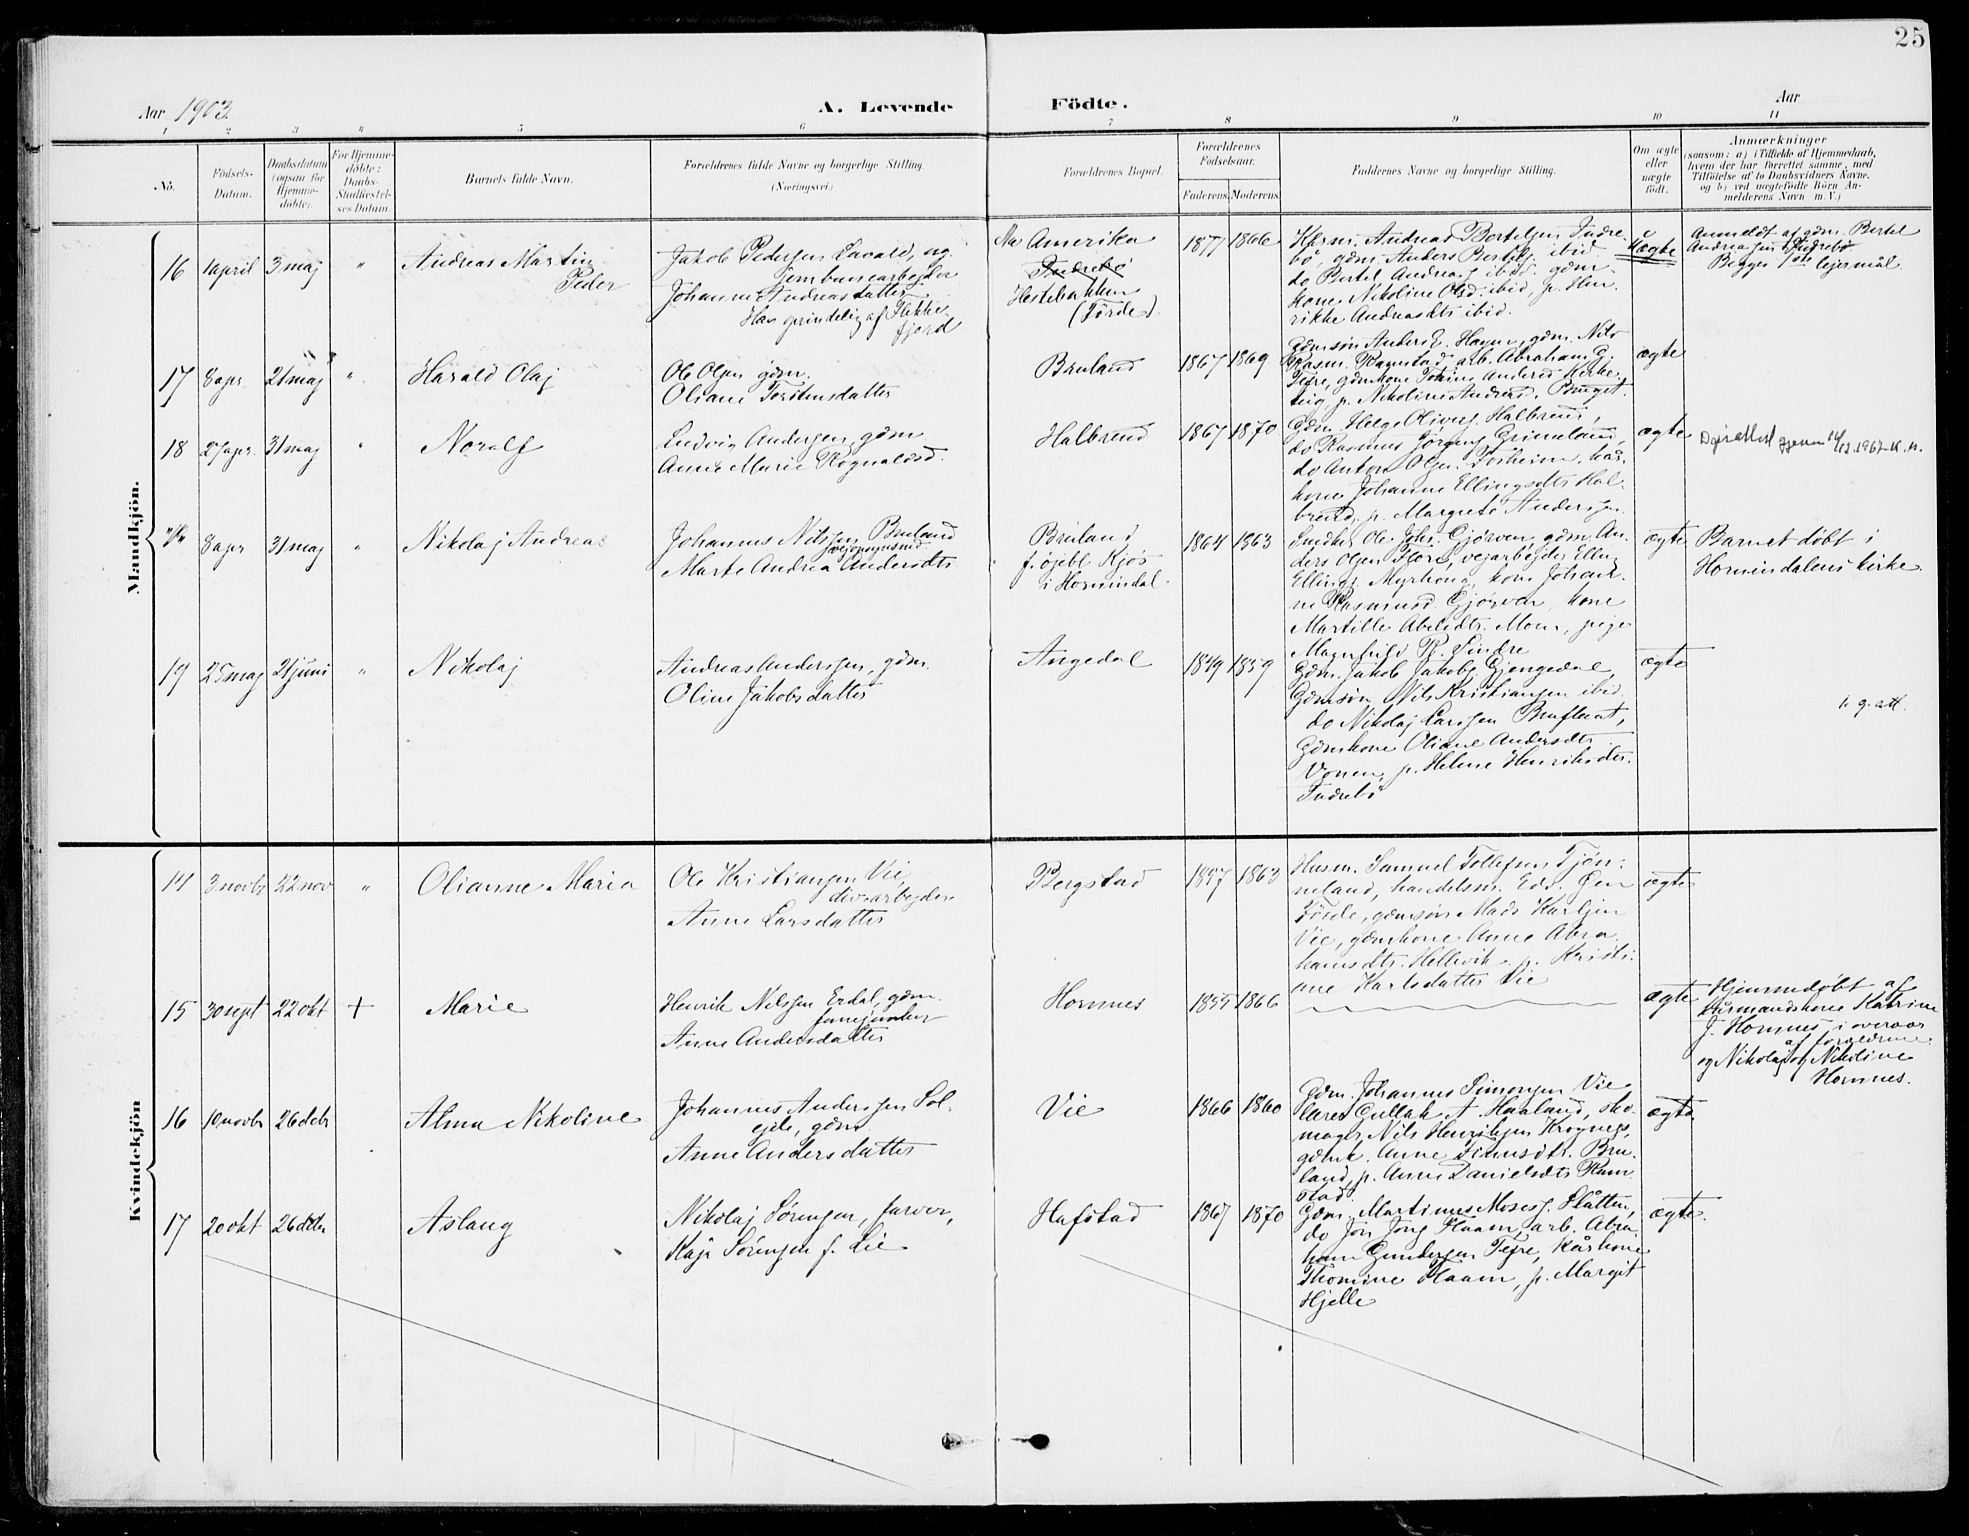 25
Aar 1903.
A. Levende
Födte.
Aar
1 2 3 4 5 6 7 8 9 10 11
No.
Födsels-
Datum.
Daabsdatum
(ogsaa for
Hjemme-
döbte).
For Hjemme-
döbte:
Daabs-
Stadfæstel-
ses Datum
Barnets fulde Navn.
Forældrenes fulde Navne og borgerlige Stilling
(Næringsvei)
Forældrenes Bopæl.
Forældrenes
Födselsaar.
Faderens. Moderens.
Faddernes Navne og borgerlige Stilling.
Om ægte
eller
uægte
födt.
Anmærkninger
(saasom: a) i Tilfælde af Hjemmedaab,
hvem der har forrettet samme, med
Tilföielse af to Daabsvidners Navne,
og b) ved uægtefödte Börn An-
melderens Navn m. V.)
Mandkjön.
16 1 april 3 maj " Andreas Martin
Peder
Jakob Pedersen Lavold, ug.
jernbanearbejder
Johanne Andreasdatter
Han oprindelig af Flekke-
fjord
Na Amerika
Indrebö
Hestebakken
(Förde).
1877 1866
Husm. Andreas Bertelsen Indre-
bö gdm. Anders Bertels. ibid.
do Bertel Andreas. ibid. gdm-
kone Nikoline Olsd. ibid, p. Hen-
rikke Andreasdtr ibid.
uægte
Anmeldt af gdm. Bertel
Andreassen Indrebö
Begges 1ste lejermål.
17 8 apr. 21 maj " Harald Olaj
Ole Olsen gdm.
Oliane Torstensdatter
Bruland
1867 1869
Gdmsön Anders E. Hagen, gdm. Nils
Rasm. Ramstad, arb. Abraham G.
Tefre, gdmkone Tomine Andersd. Kirke-
teig p. Nikoline Andersd. Bruget.
ægte
18 27 apr. 31 maj " Noralf
Ludvig Andersen, gdm
Anne Marie Rognaldsd.
Halbrend
1867 1870
Gdm. Helge Olivers. Halbrend,
do Rasmus Jörgens. Grimelund,
do Anton Olsen Försheim, kår-
kone Johanne Ellingsdtr Hal-
brend, p. Margrete Andersen
ægte
8 apr 31 maj " Nikolaj Andreas
Johannes Nilsen Bruland
vejopsynsmd.
Marte Andrea Andersdtr
Bruland
f. öjebl. Kjös
i Hornindal
1864 1863
Snedker Ole Johs. Gjörven, gdm. An-
ders Olsen Flore, vejarbejder Elling
Ellings. Myrhaug, kone Johan-
ne Rasmusd. Gjörven, kone
Martille Abelsdtr. Moen, pige
Magnhild R. Sindre
ægte
Barnet döbt i
Hornindalens kirke.
19 25 maj 21 juni " Nikolaj
Andreas Anderssen, gdm.
Oline Jakobsdatter
Angedal
1849 1859
Gdm. Jakob Jakobs. Gjengedal,
Gdmsön Nils Kristiansen ibid.
do Nikolaj Larssen Bruflaat,
Gdmkone Oliane Andersdtr
Vonen, p. Helene Henriksdtr.
Indrebö
ægte
Kvindekjön
14 3 novbr 22 nov " Olianne Maria
Ole Kristiansen Vie
div. arbejder
Anne Larsdatter
Bergstad
1857 1863
Husm. Samuel Tollefsen Tjön-
neland, handelsm. Edv. Öen
Förde, gdmsön Mads Karlsen
Vie, gdmkone Anne Abra-
hamsdtr. Hellevik p. Kristi-
ane Karlsdatter Vie
ægte
15 30 sept 22 okt + Marie
Henrik Nilssen Erdal, gdm.
Anne Andersdatter
Hornnes
1855 1866
ægte
Hjemmedöbt af
kårmandskone Katrine
J. Hornnes i overvær
af forældrene
og Nikolaj og Nikoline
Hornnes.
16 10 novbr 26 debr Alma Nikoline
Johannes Anderssen Sol-
ejde, gdm
Anne Andersdatter
Vie
1866 1860
Gdm. Johannes Simonsen Vie
lærer Gullak A. Haaland, sko-
mager Nils Henriksen Kroynes,
gdmk. Anne Simonsdtr. Bru-
land, p. Anne Danielsdtr Ram-
stad.
ægte
17 20 okt 26 debr Aslaug
Nikolaj Sörensen, farver,
Kaja Sörensen f. Lie
Hafstad
1867 1870
Gdm. Martinus Moses. Slåtten,
do Jon Jons. Haam, arb. Abra-
ham Gundersen Tefre, Kårkone
Thomine Haam, p. Margit
Hjelle
ægte.